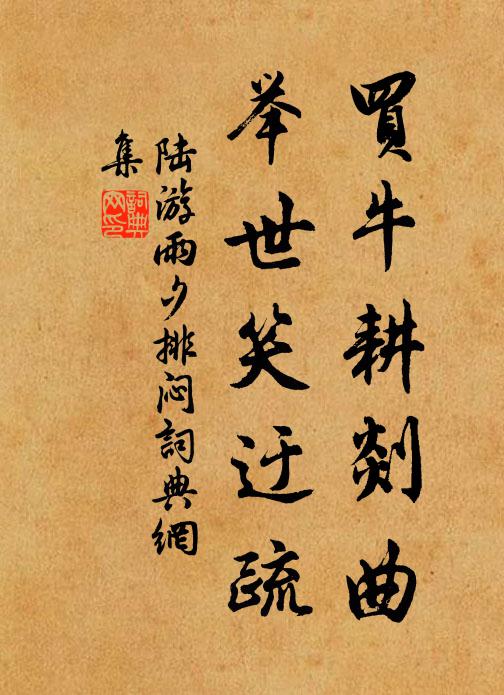 買牛耕剡曲
举世笑迂疏
陆游雨夕排闷詞典網
集
詞典网印